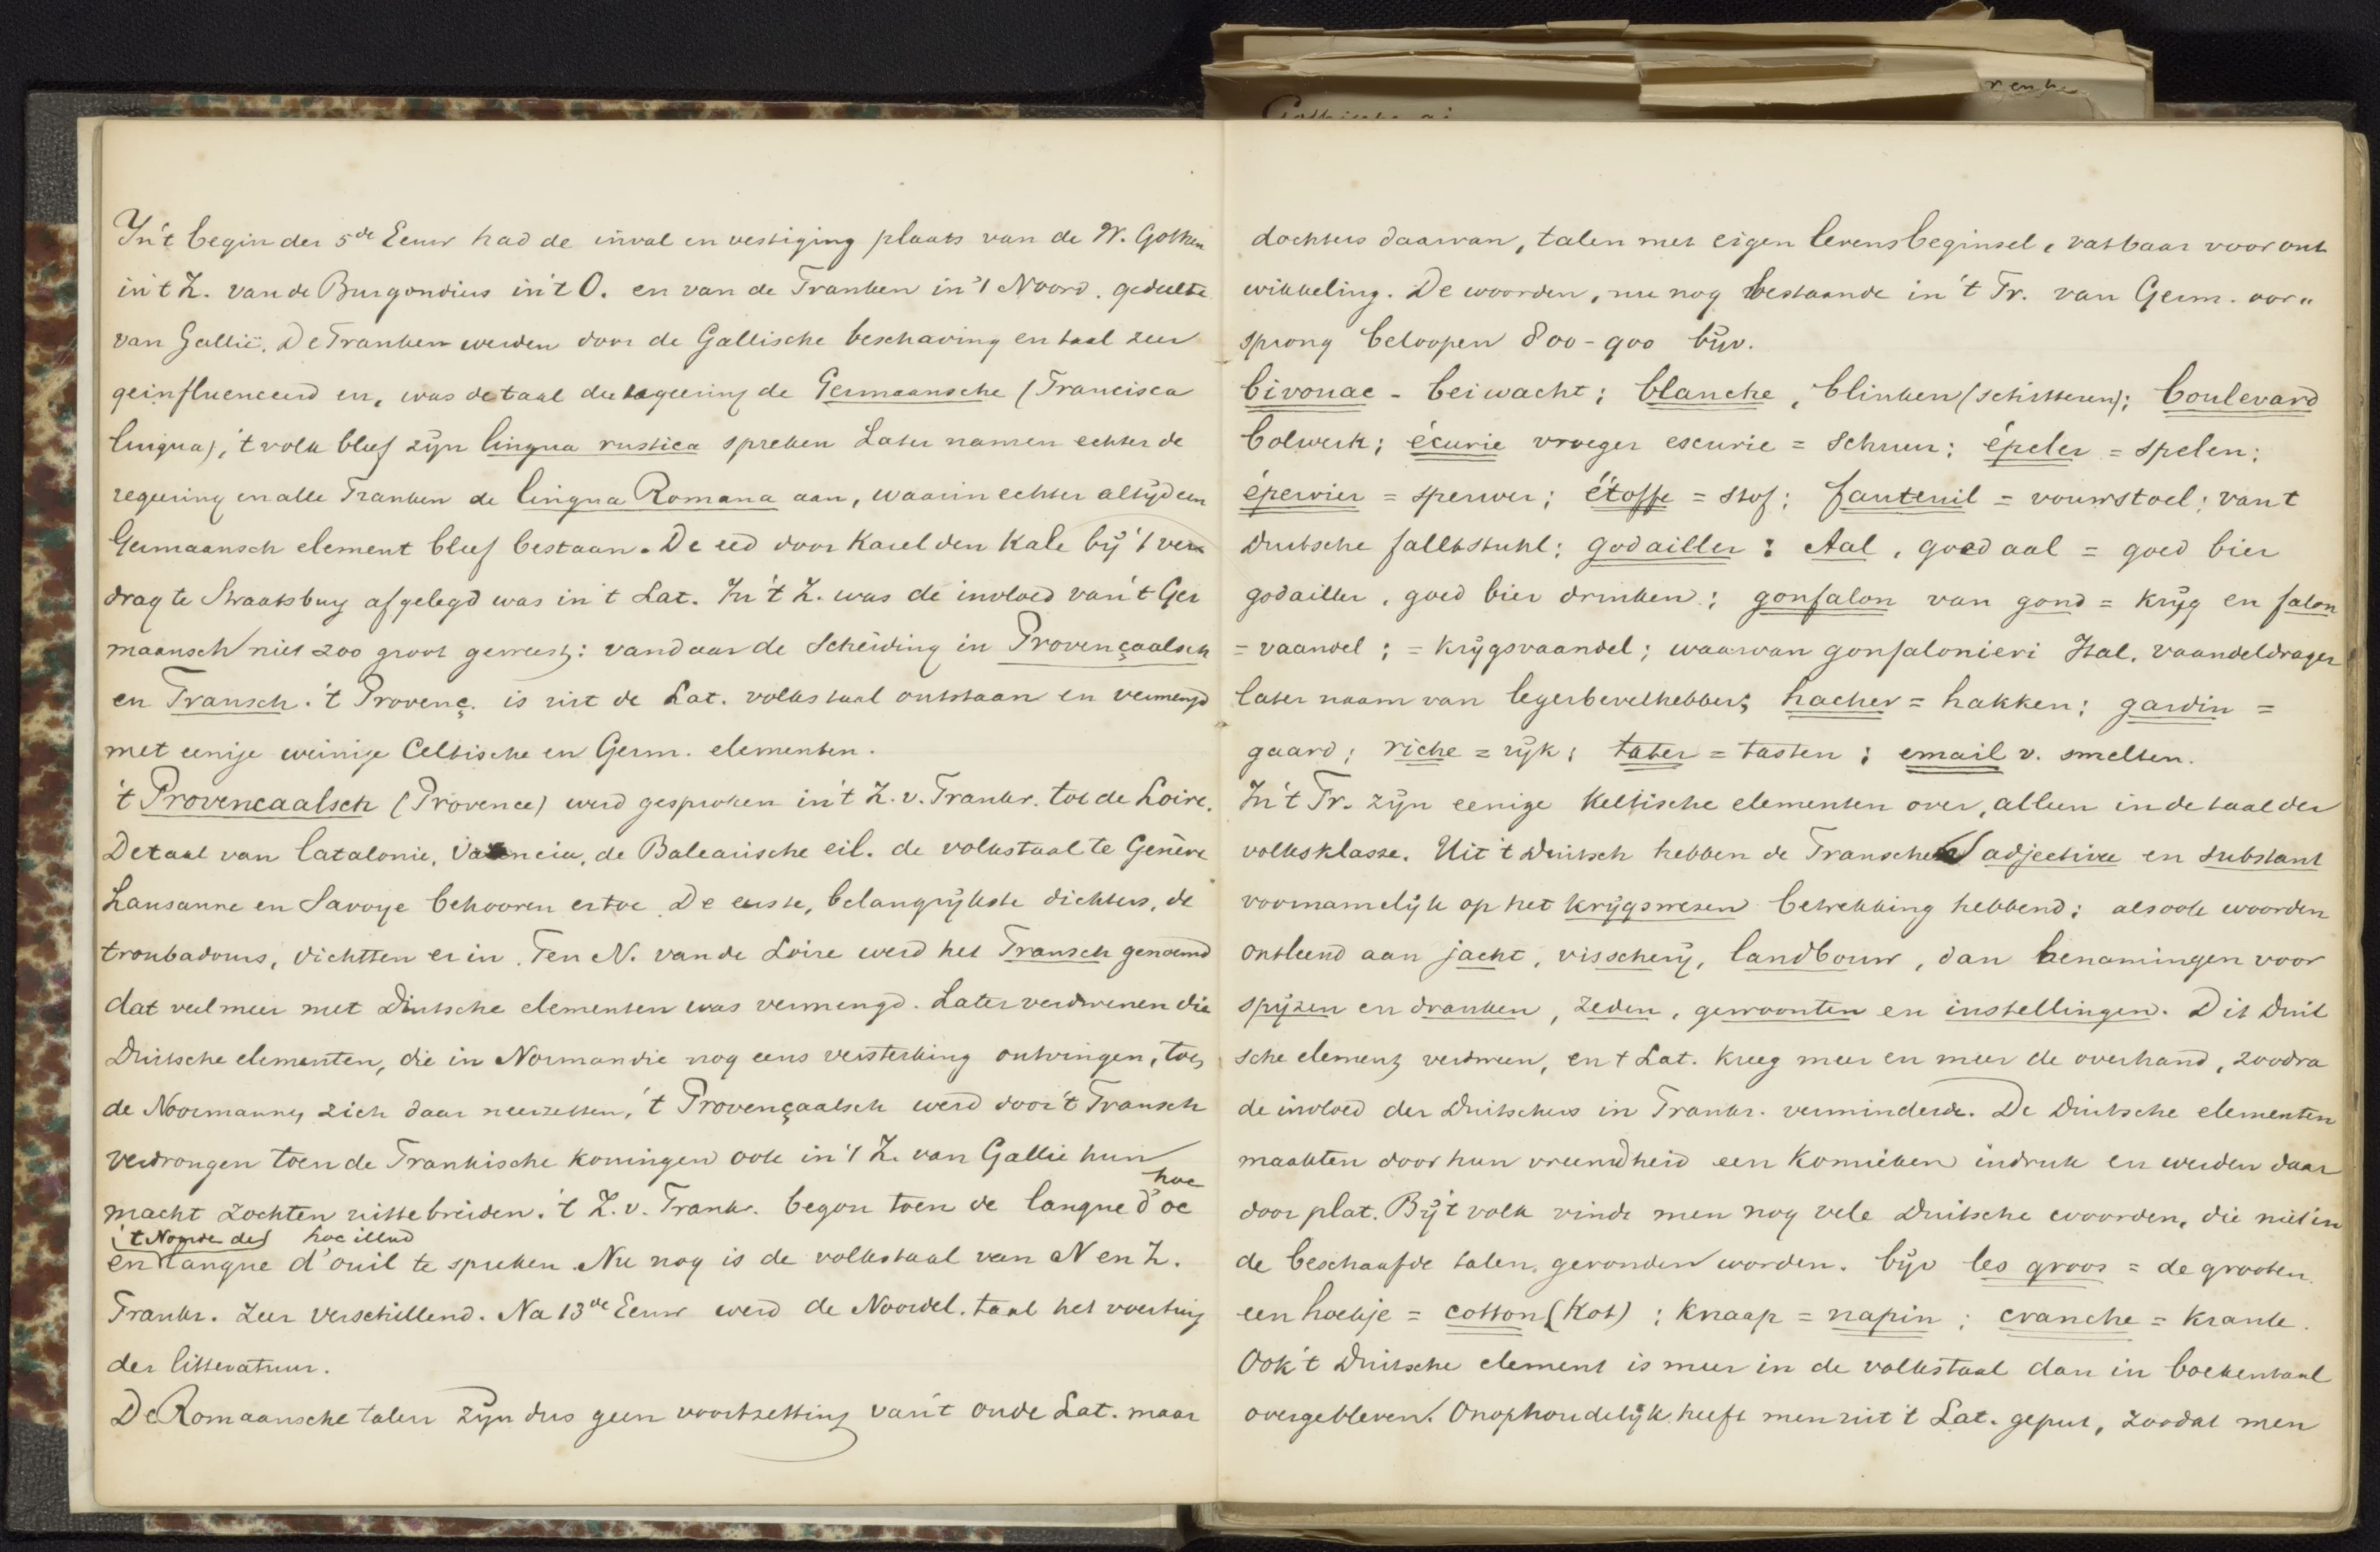 In 't begin der 5de Eeuw had de inval en vestiging plaats van de W. Gothen
in t Z. van de Burgondiers in 't O. en van de Franken in 't Noord. gedeelte
van Gallië. De Franken werden door de Gallische beschaving en taal zeer
geinfluenceerd en, was de taal der regeering de Germaansche (Francisca
lingua), 't volk bleef zijn lingua rustica spreken Later namen echter de
regeering en alle Franken de lingua Romana aan, waarin echter altijd een
Germaansch element bleef bestaan. De eed door Karel den Kale bij 't ver
drag te Straatsburg afgelegd was in t Lat. In 't Z. was de invloed van 't Ger
maansch niet zoo groot geweest: vandaar de Scheiding in Provençaalsch
en Fransch. 't Provenç. is uit de Lat. volkstaal ontstaan en vermengd
met eenige weinige Celtische en Germ. elementen.
't Provencaalsch (Provence) werd gesproken in 't Z. v. Frankr. tot de Loire.
De taal van Catalonie, Valencia, de Balearische eil. de volkstaal te Genève
Lausanne en Savoye behooren ertoe. De eerste, belangrijkste dichters, de
troubadours, dichtten er in. Ten N. van de Loire werd het Fransch genoemd
dat veel meer met Duitsche elementen was vermengd. Later verdwenen die
Duitsche elementen, die in Normandie nog eens versterking ontvingen, toen
de Noormannen zich daar neerzetten, 't Provençaalsch werd door 't Fransch
verdrongen toen de Frankische koningen ook in 't Z. van Gallie hun
hoc
macht zochten uit te breiden. 't Z. v. Frankr. begon toen de langue d'oc
't Noorde de hoc illud
en langue d'ouil te spreken. Nu nog is de volkstaal van N en Z.
Frankr. zeer verschillend. Na 13de Eeuw werd de Noordel. taal het voertuig
der litteratuur.
De Romaansche talen zijn dus geen voortzetting van 't oude Lat. maar
dochters daarvan, talen met eigen levensbeginsel, vatbaar voor ont
wikkeling. De woorden, nu nog bestaande in 't Fr. van Germ. oor"
sprong beloopen 800-900 bijv.
bivouac - beiwacht; blanche, blinken (schitteren); boulevard
bolwerk; écurie vroeger escurie = schuur; épeler = spelen;
épervier = sperwer; étoffe = stof; fauteuil = vouwstoel; van t
Duitsche falltstuhl; godailler : Aal, goed aal = goed bier
godailler, goed bier drinken; gonfalon van gond = krijg en falon
= vaandel; = krijgsvaandel; waarvan gonfalonieri Ital. vaandeldrager
later naam van legerbevelhebber; hacher = hakken; gardin =
gaard; riche = rijk; tater = tasten; email v. smelten.
In 't Fr. zijn eenige Keltische elementen over, alleen in de taal der
volksklasse. Uit 't Duitsch hebben de Franschen adjective en substant
voornamelijk op het krijgswezen betrekking hebbend; alsook woorden
ontleend aan jacht, visscherij, landbouw, dan benamingen voor
spijzen en dranken, zeden, gewoonten en instellingen. Dit Duit
sche element verdween, en t Lat. kreeg meer en meer de overhand, zoodra
de invloed der Duitschers in Frankr. verminderde. De Duitsche elementen
maakten door hun vreemdheid een komieken indruk en werden daar
door plat. Bij 't volk vindt men nog vele Duitsche woorden, die niet in
de beschaafde talen gevonden worden. bijv les groos = de grooten
een hoekje = cotton (Kot); knaap = napin; cranche = kranke.
Ook 't Duitsche element is meer in de volkstaal dan in boekentaal
overgebleven. Onophoudelijk heeft men uit 't Lat. geput, zoodat men